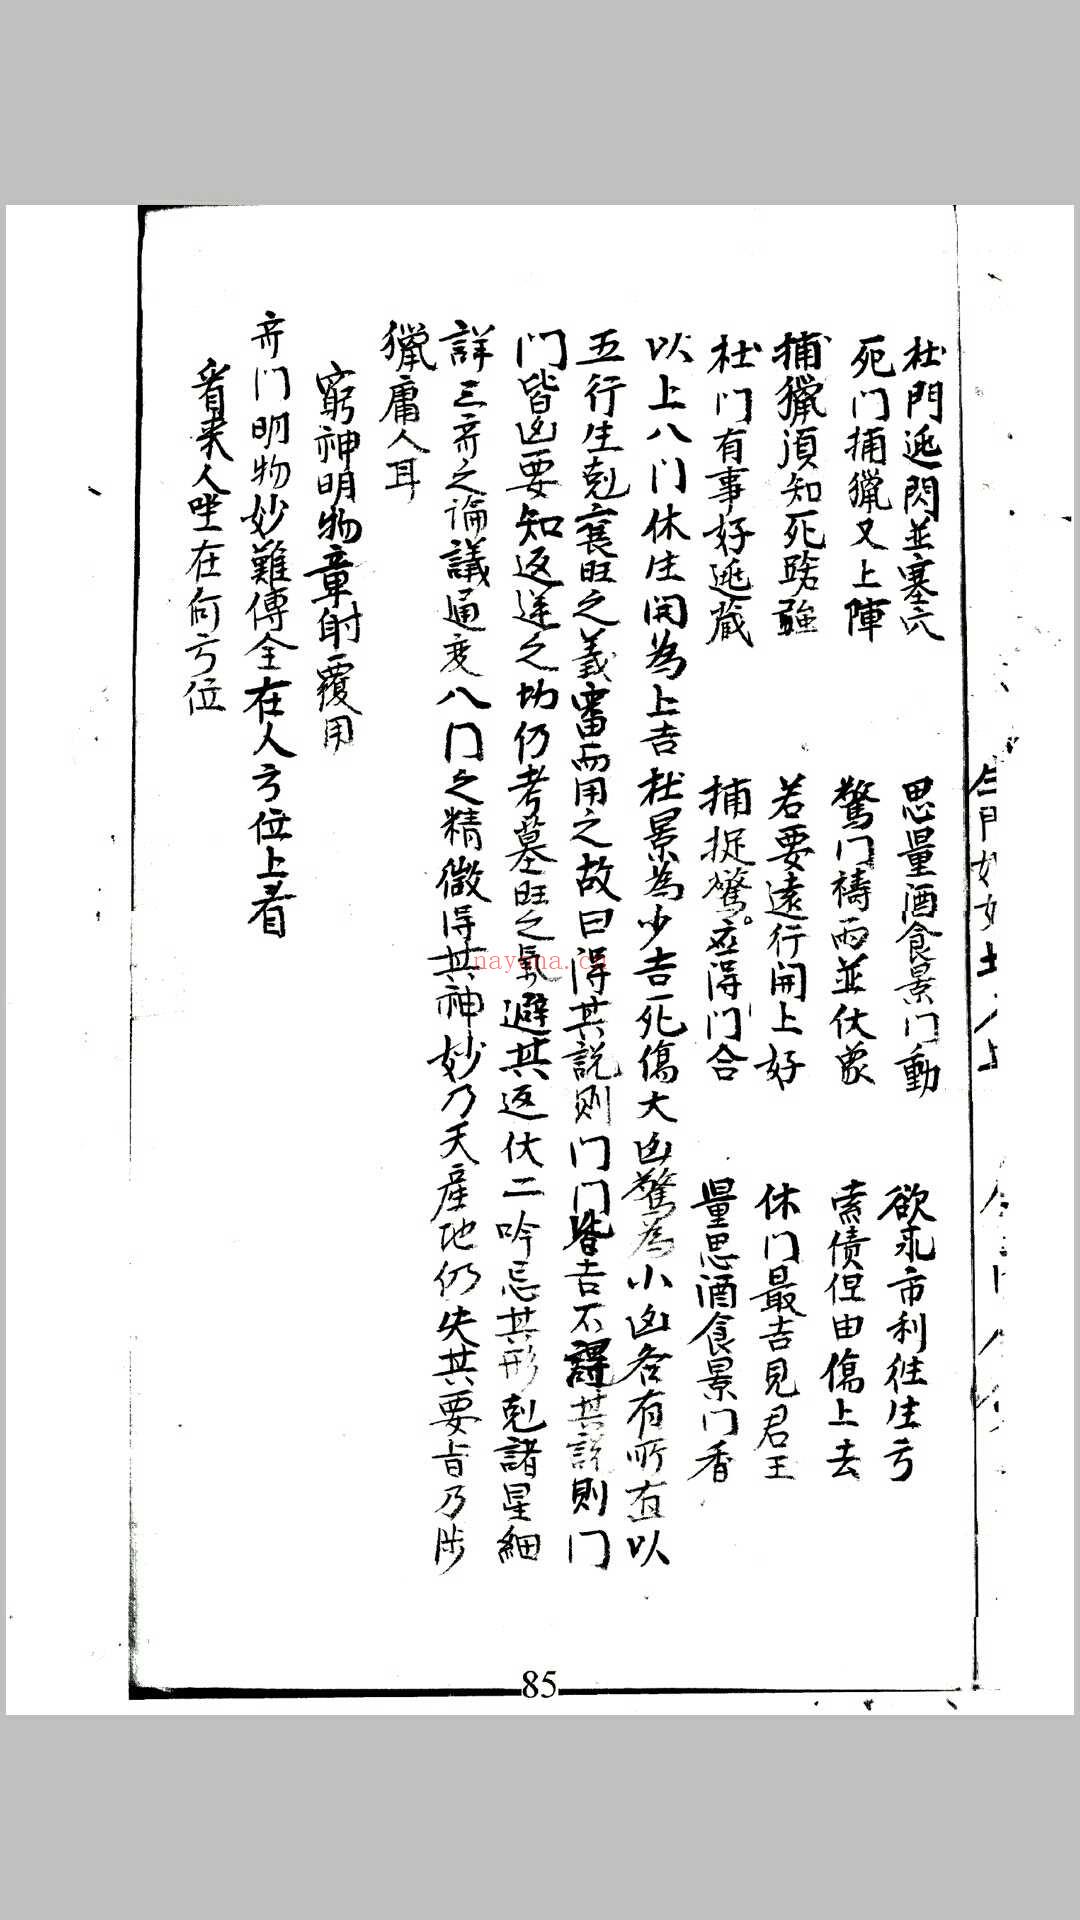 杜門逃閃並塞穴 思量酒食景门動 欲求市利往生方
死门捕獵又上陣 驚门禱雨並伏象 索债但由傷上去
捕獵須知死路強 若要遠行開上好 休门最吉見君王
杜门有事好逃藏 捕捉驚。应得门合 量思酒食景门香
以上八门休生開為上吉杜景為少吉死傷大凶驚為小凶各有所宜以
五行生剋衰旺之義審而用之故曰得其説则门门皆吉不得其説则门
门皆凶要知返迷之切仍考墓旺之氣避其返伏二吟忌其形剋諸星細
詳三奇之論議通変八门之精微得其神妙乃天產地仍失其要旨乃涉
獵庸人耳
窮神明物章射覆用
奇门明物妙難傳全在人方位上看
看来人坐在何方位
85
nayona.cn